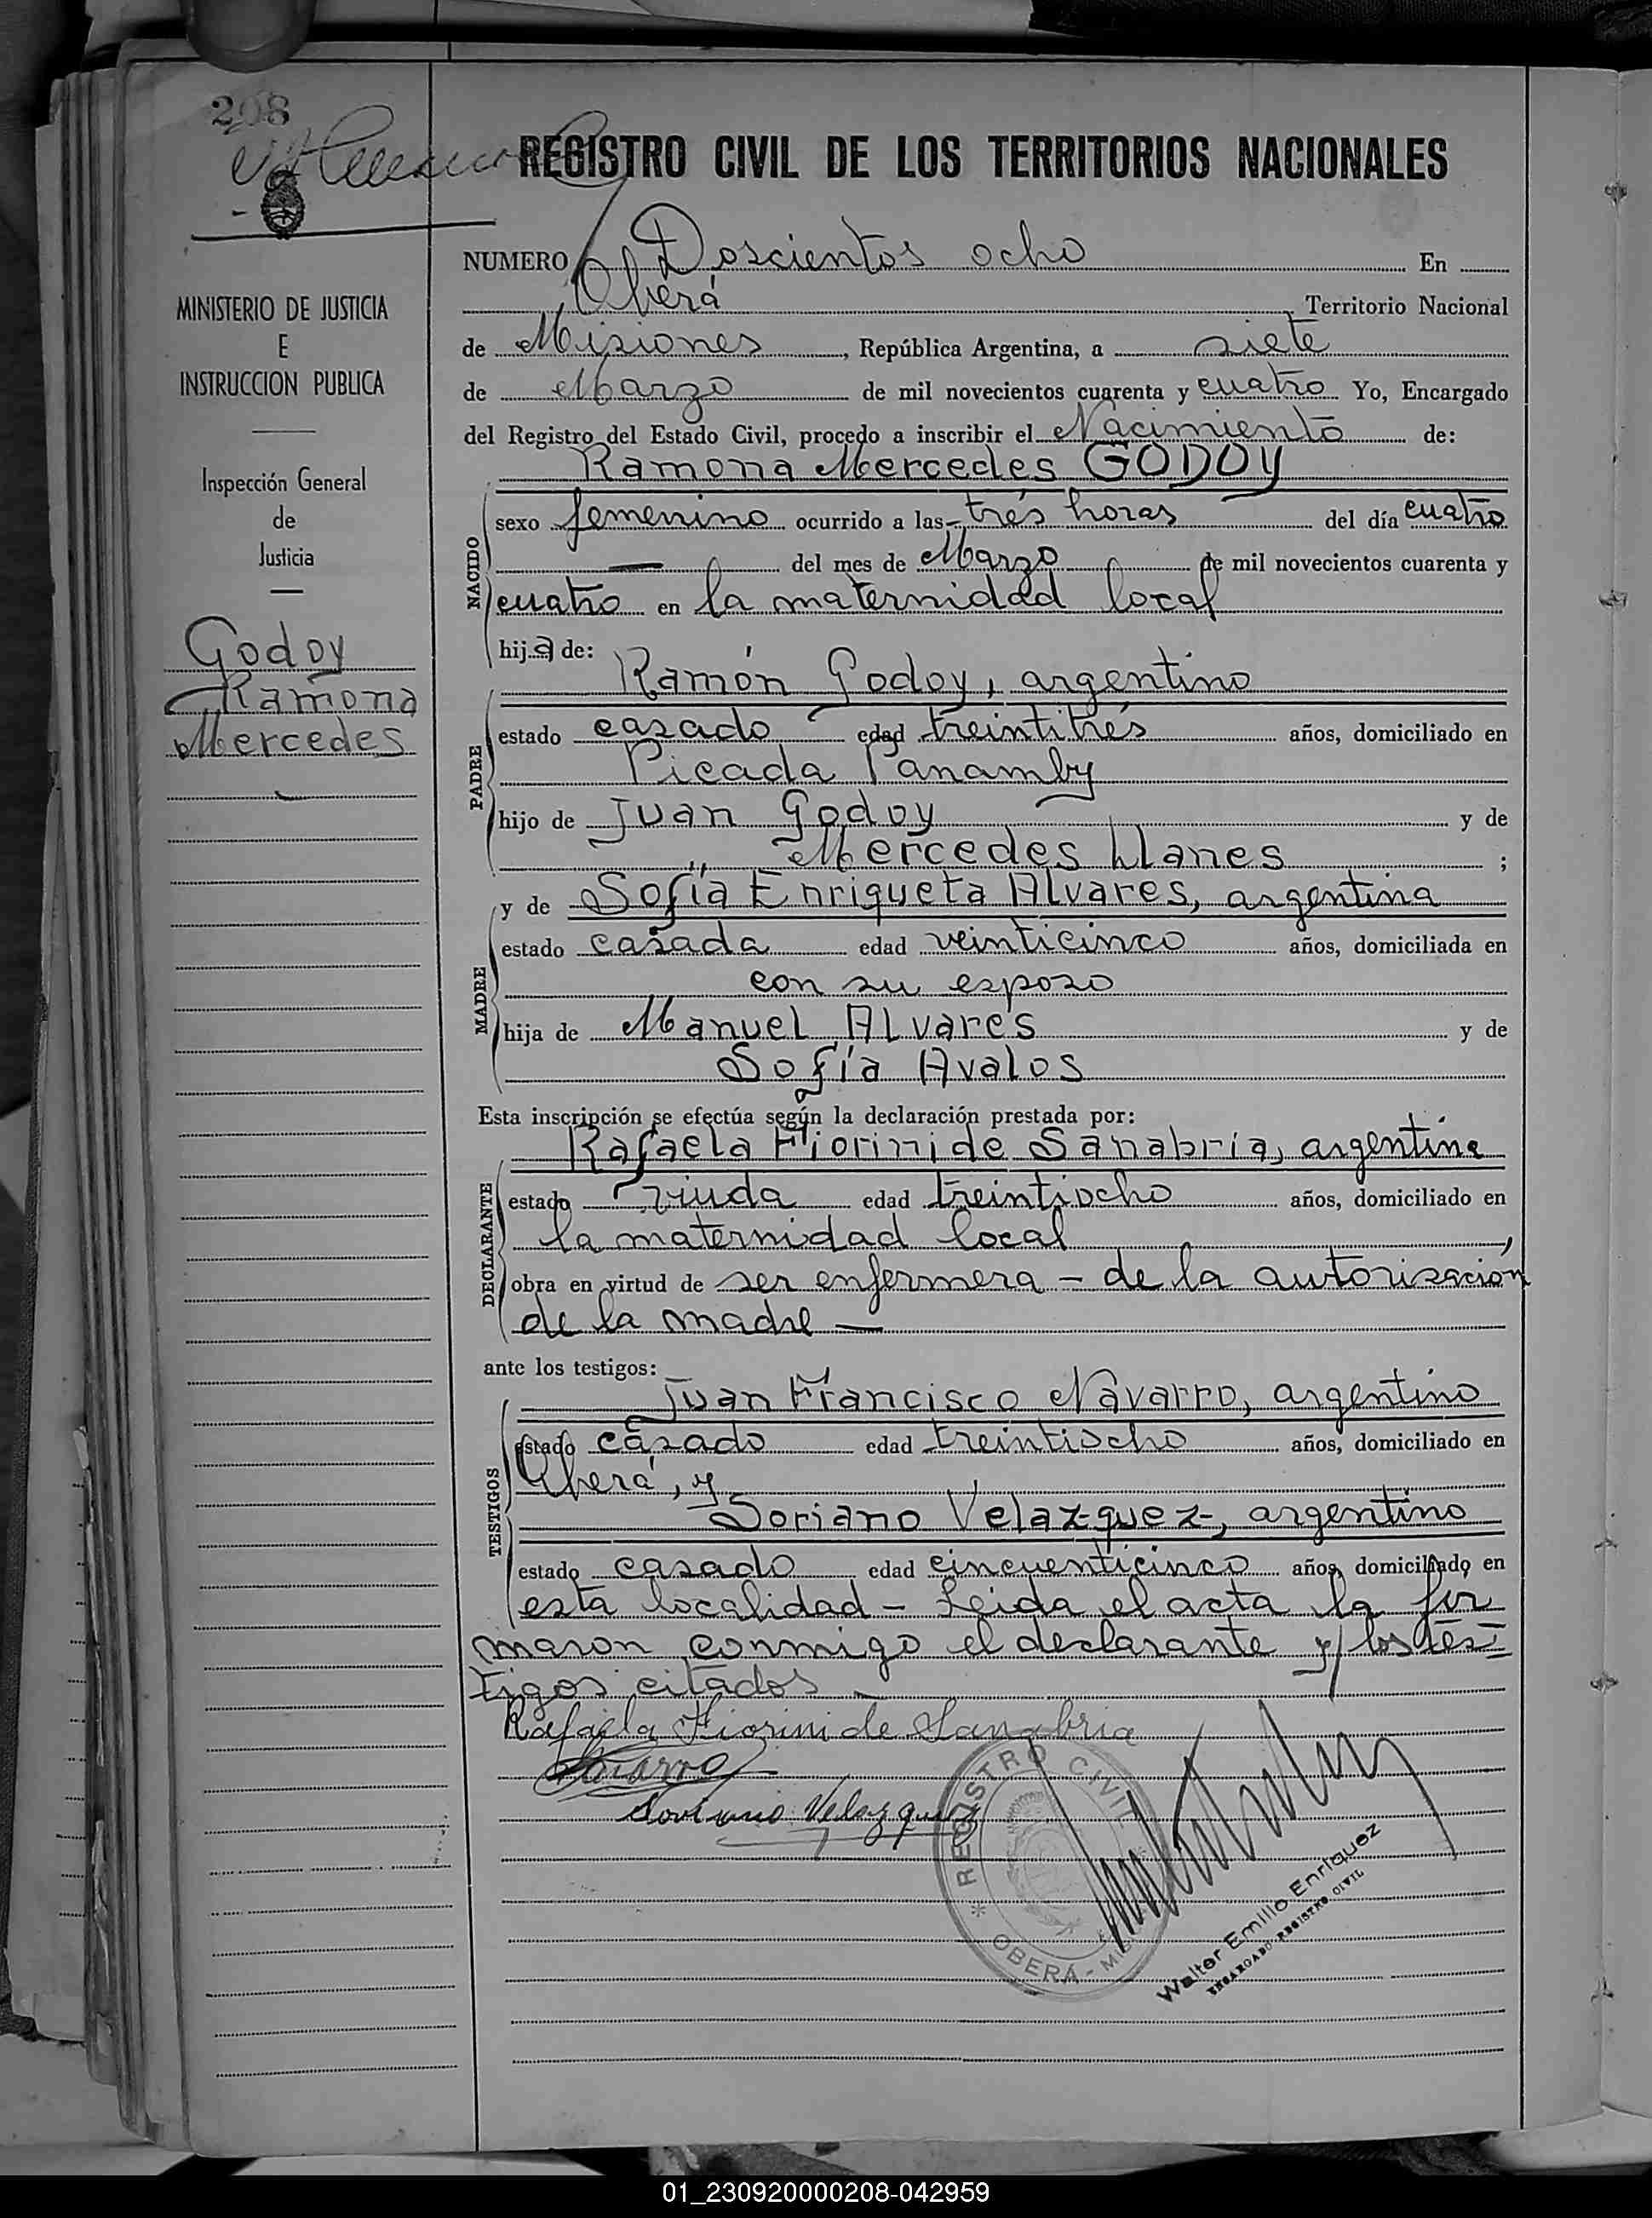 208
REGISTRO CIVIL DE LOS TERRITORIOS NACIONALES
MINISTERIO DE JUSTICIA
E
INSTRUCCION PUBLICA
Inspección General
de
Justicia
Godoy
Ramona
Mercedes
NUMERO Doscientos ocho En
Oberá Territorio Nacional
de Misiones, República Argentina, a siete
de Marzo de mil novecientos cuarenta y cuatro Yo, Encargado
del Registro del Estado Civil, procedo a inscribir el Nacimiento de:
Ramona Mercedes GODOY
NACIDO
sexo femenino ocurrido a las tres horas del día cuatro
— del mes de Marzo de mil novecientos cuarenta y
cuatro en la maternidad local
hija de:
Ramón Godoy, argentino
PADRE
estado casado edad treintitrés años, domiciliado en
Picada Panamby
hijo de Juan Godoy y de
Mercedes Llanes ;
y de Sofía Enriqueta Alvares, argentina
MADRE
estado casada edad veinticinco años, domiciliada en
con su esposo
hija de Manuel Alvares y de
Sofía Avalos
Esta inscripción se efectúa según la declaración prestada por:
Rafaela Fiorini de Sanabria, argentina
DECLARANTE
estado viuda edad treintiocho años, domiciliado en
la maternidad local,
obra en virtud de ser enfermera - de la autorización
de la madre —
ante los testigos:
Juan Francisco Navarro, argentino
TESTIGOS
estado casado edad treintiocho años, domiciliado en
Oberá, y
Soriano Velazquez, argentino
estado casado edad cincuenticinco años, domiciliado en
esta localidad - Leida el acta la fir
maron conmigo el declarante y los tes-
tigos citados -
Rafaela Fiorini de Sanabria
Navarro
Soriano Velazquez
* REGISTRO CIVIL *
OBERÁ - M
Walter Emilio Enriquez
ENCARGADO REGISTRO CIVIL
01_230920000208-042959